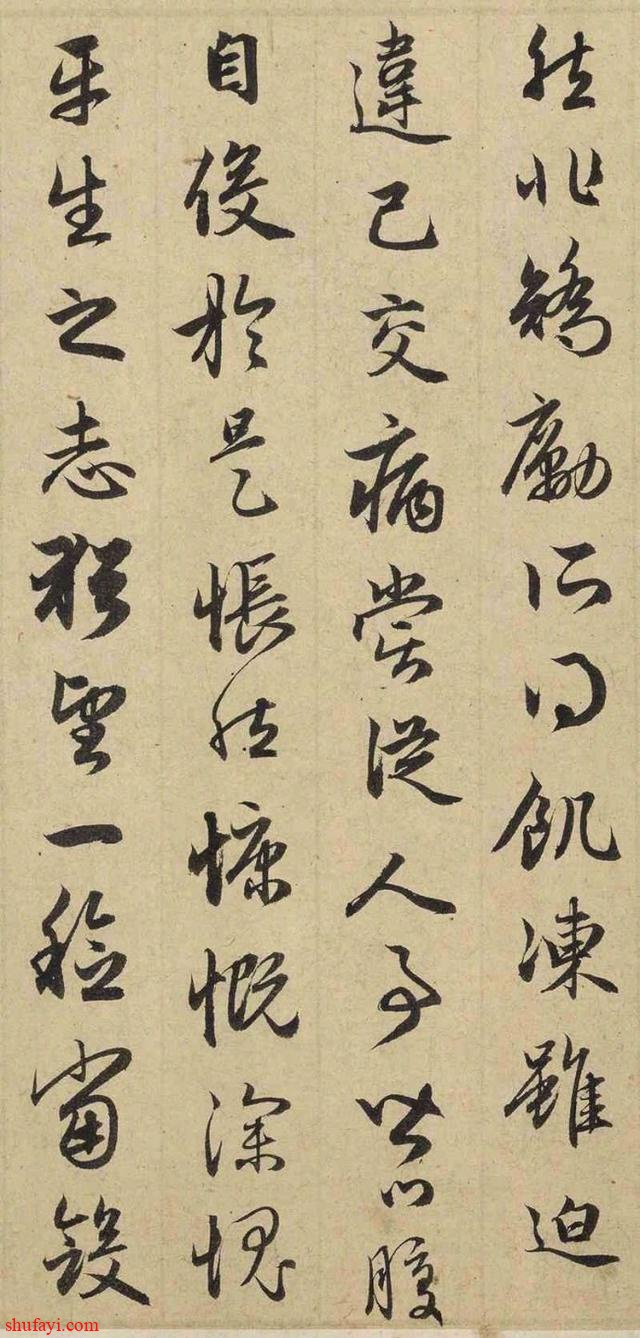 然非矯勵所得飢凍雖迫
違己交病嘗從人事皆口腹
自役於是悵然慷慨深愧
平生之志猶望一稔當斂
shufayi.com